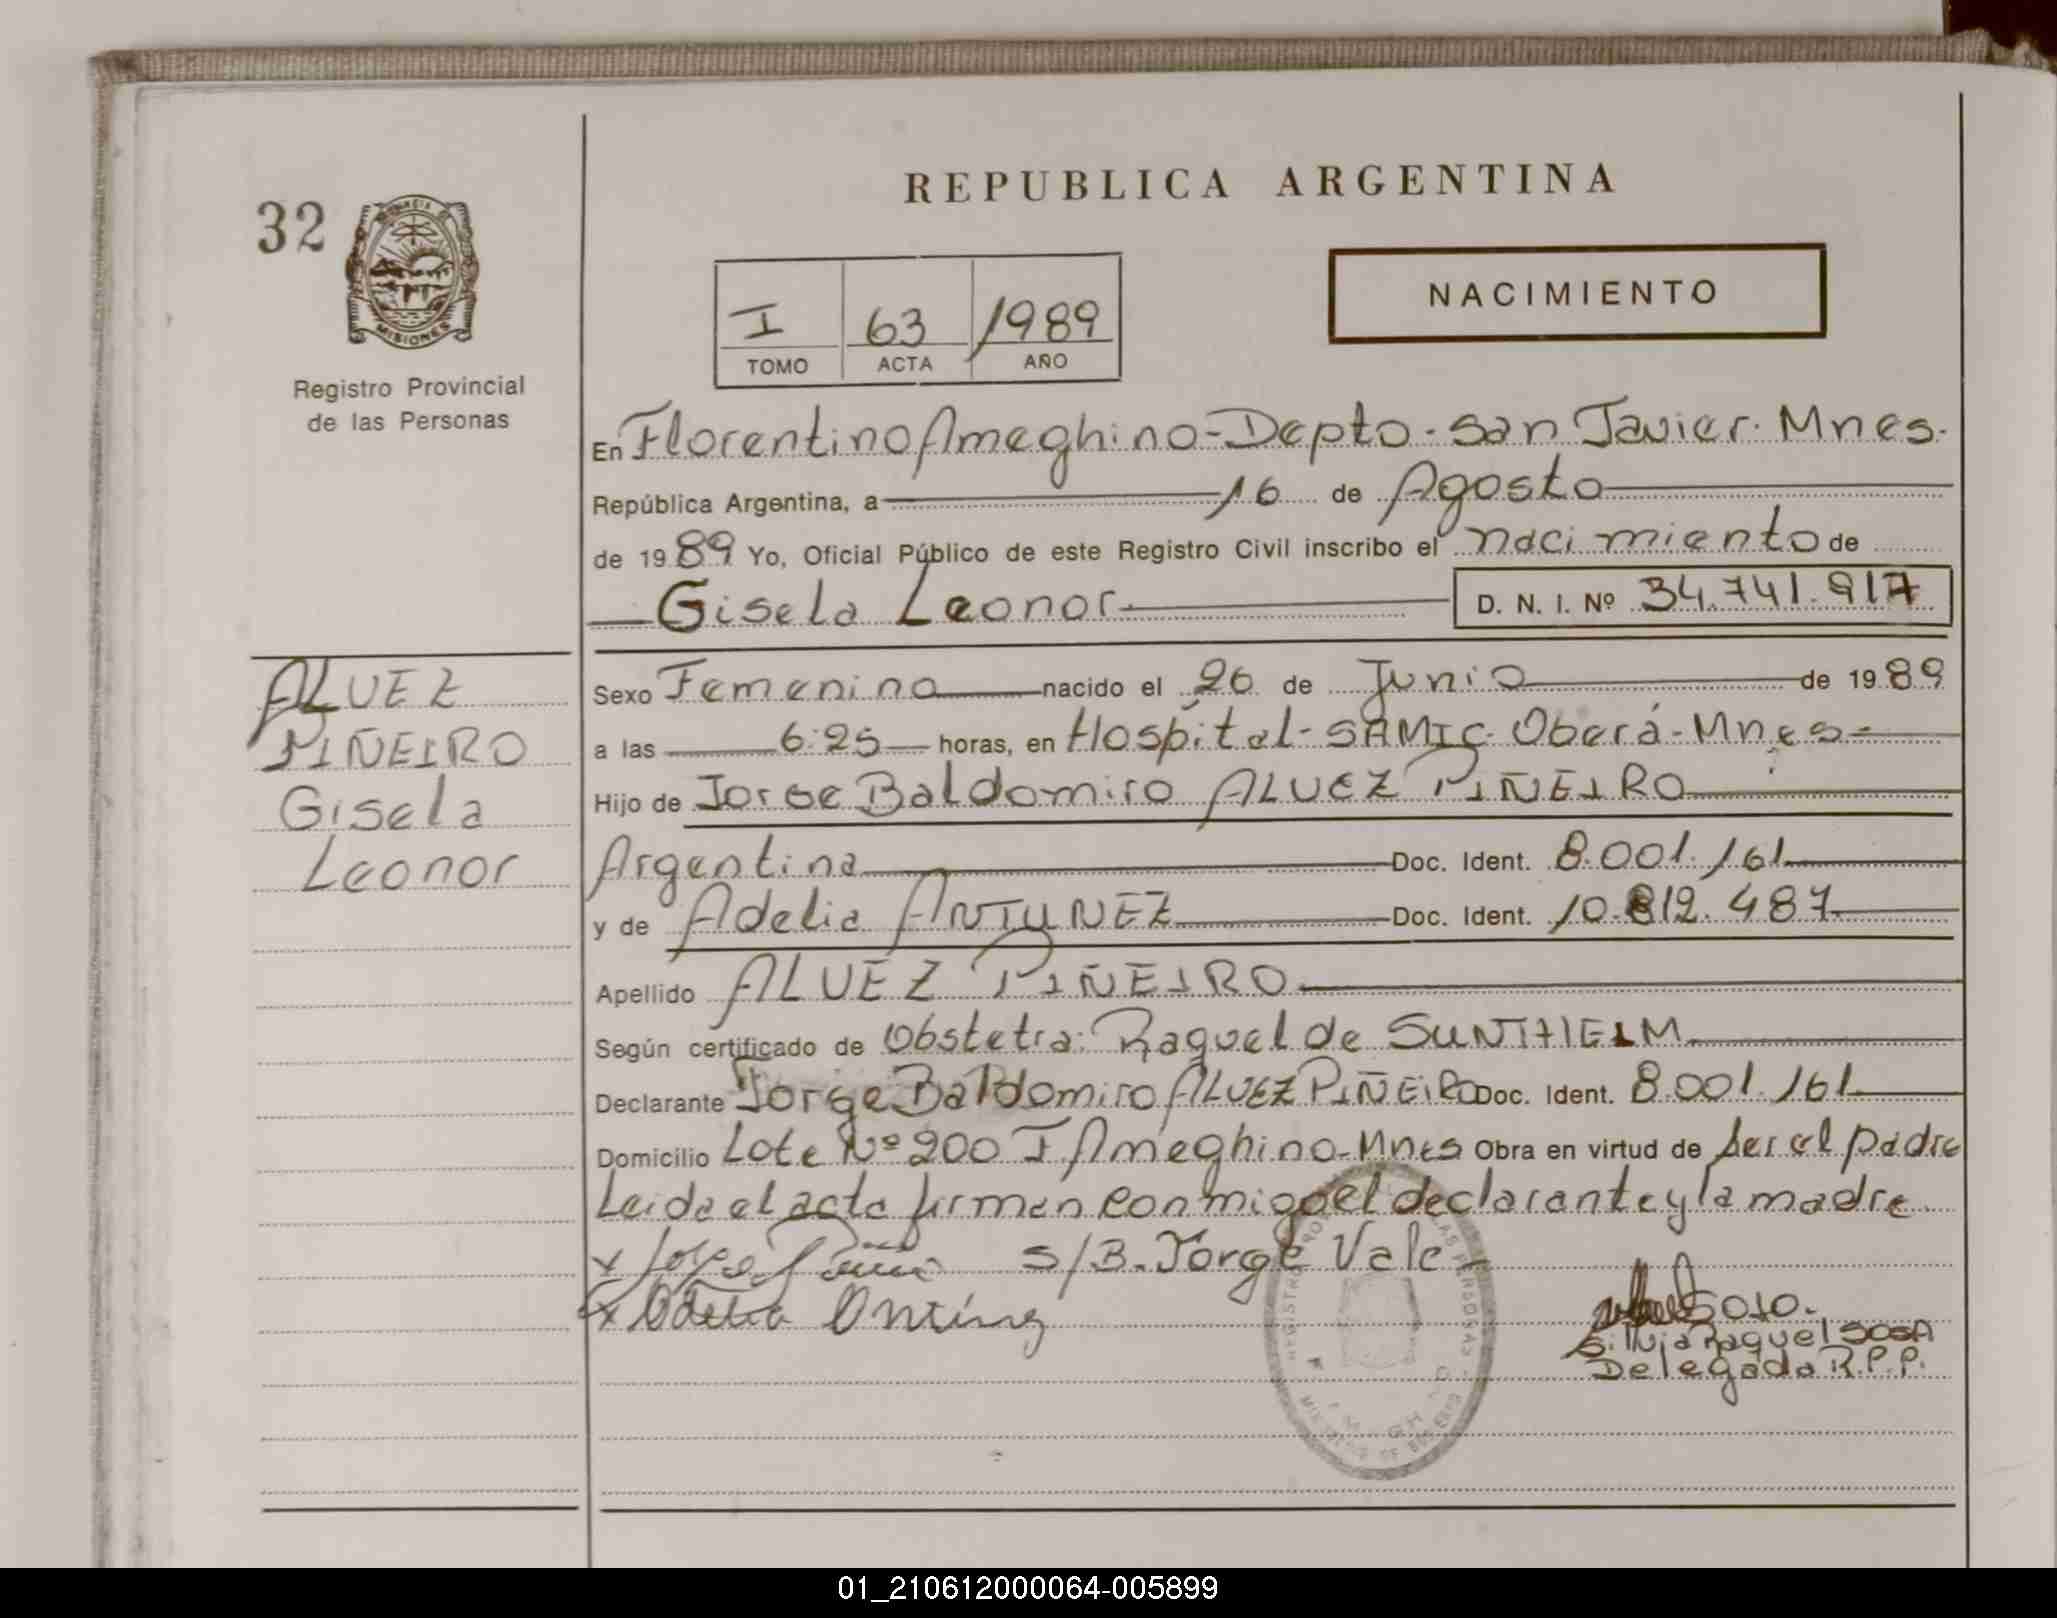 32
PROVINCIA DE
MISIONES
Registro Provincial
de las Personas
REPUBLICA ARGENTINA
NACIMIENTO
I 63 1989
TOMO ACTA AÑO
En Florentino Ameghino-Depto. San Javier. Mnes.
República Argentina, a 16 de Agosto
de 1989 Yo, Oficial Público de este Registro Civil inscribo el nacimiento de
Gisela Leonor D. N. I. Nº 34.741.917
ALVEZ
PIÑEIRO
Gisela
Leonor
Sexo Femenino nacido el 26 de Junio de 1989
a las 6:25 horas, en Hospital-SAMIC. Oberá-Mnes-
Hijo de Jorge Baldomiro ALVEZ PIÑEIRO
Argentina Doc. Ident. 8.001.161
y de Adelia ANTUNEZ Doc. Ident. 10.812.487
Apellido ALVEZ PIÑEIRO
Según certificado de Obstetra: Raquel de SUNTHEIM
Declarante Jorge Baldomiro ALVEZ PIÑEIRO Doc. Ident. 8.001.161
Domicilio Lote Nº 200 F Ameghino-Mnes Obra en virtud de ser el padre
Leida el acta firman conmigo el declarante y la madre
x Jorge S/B. Jorge Vale
x Odelia
Silvia Raquel SOSA
Delegada R.P.P.
01_210612000064-005899